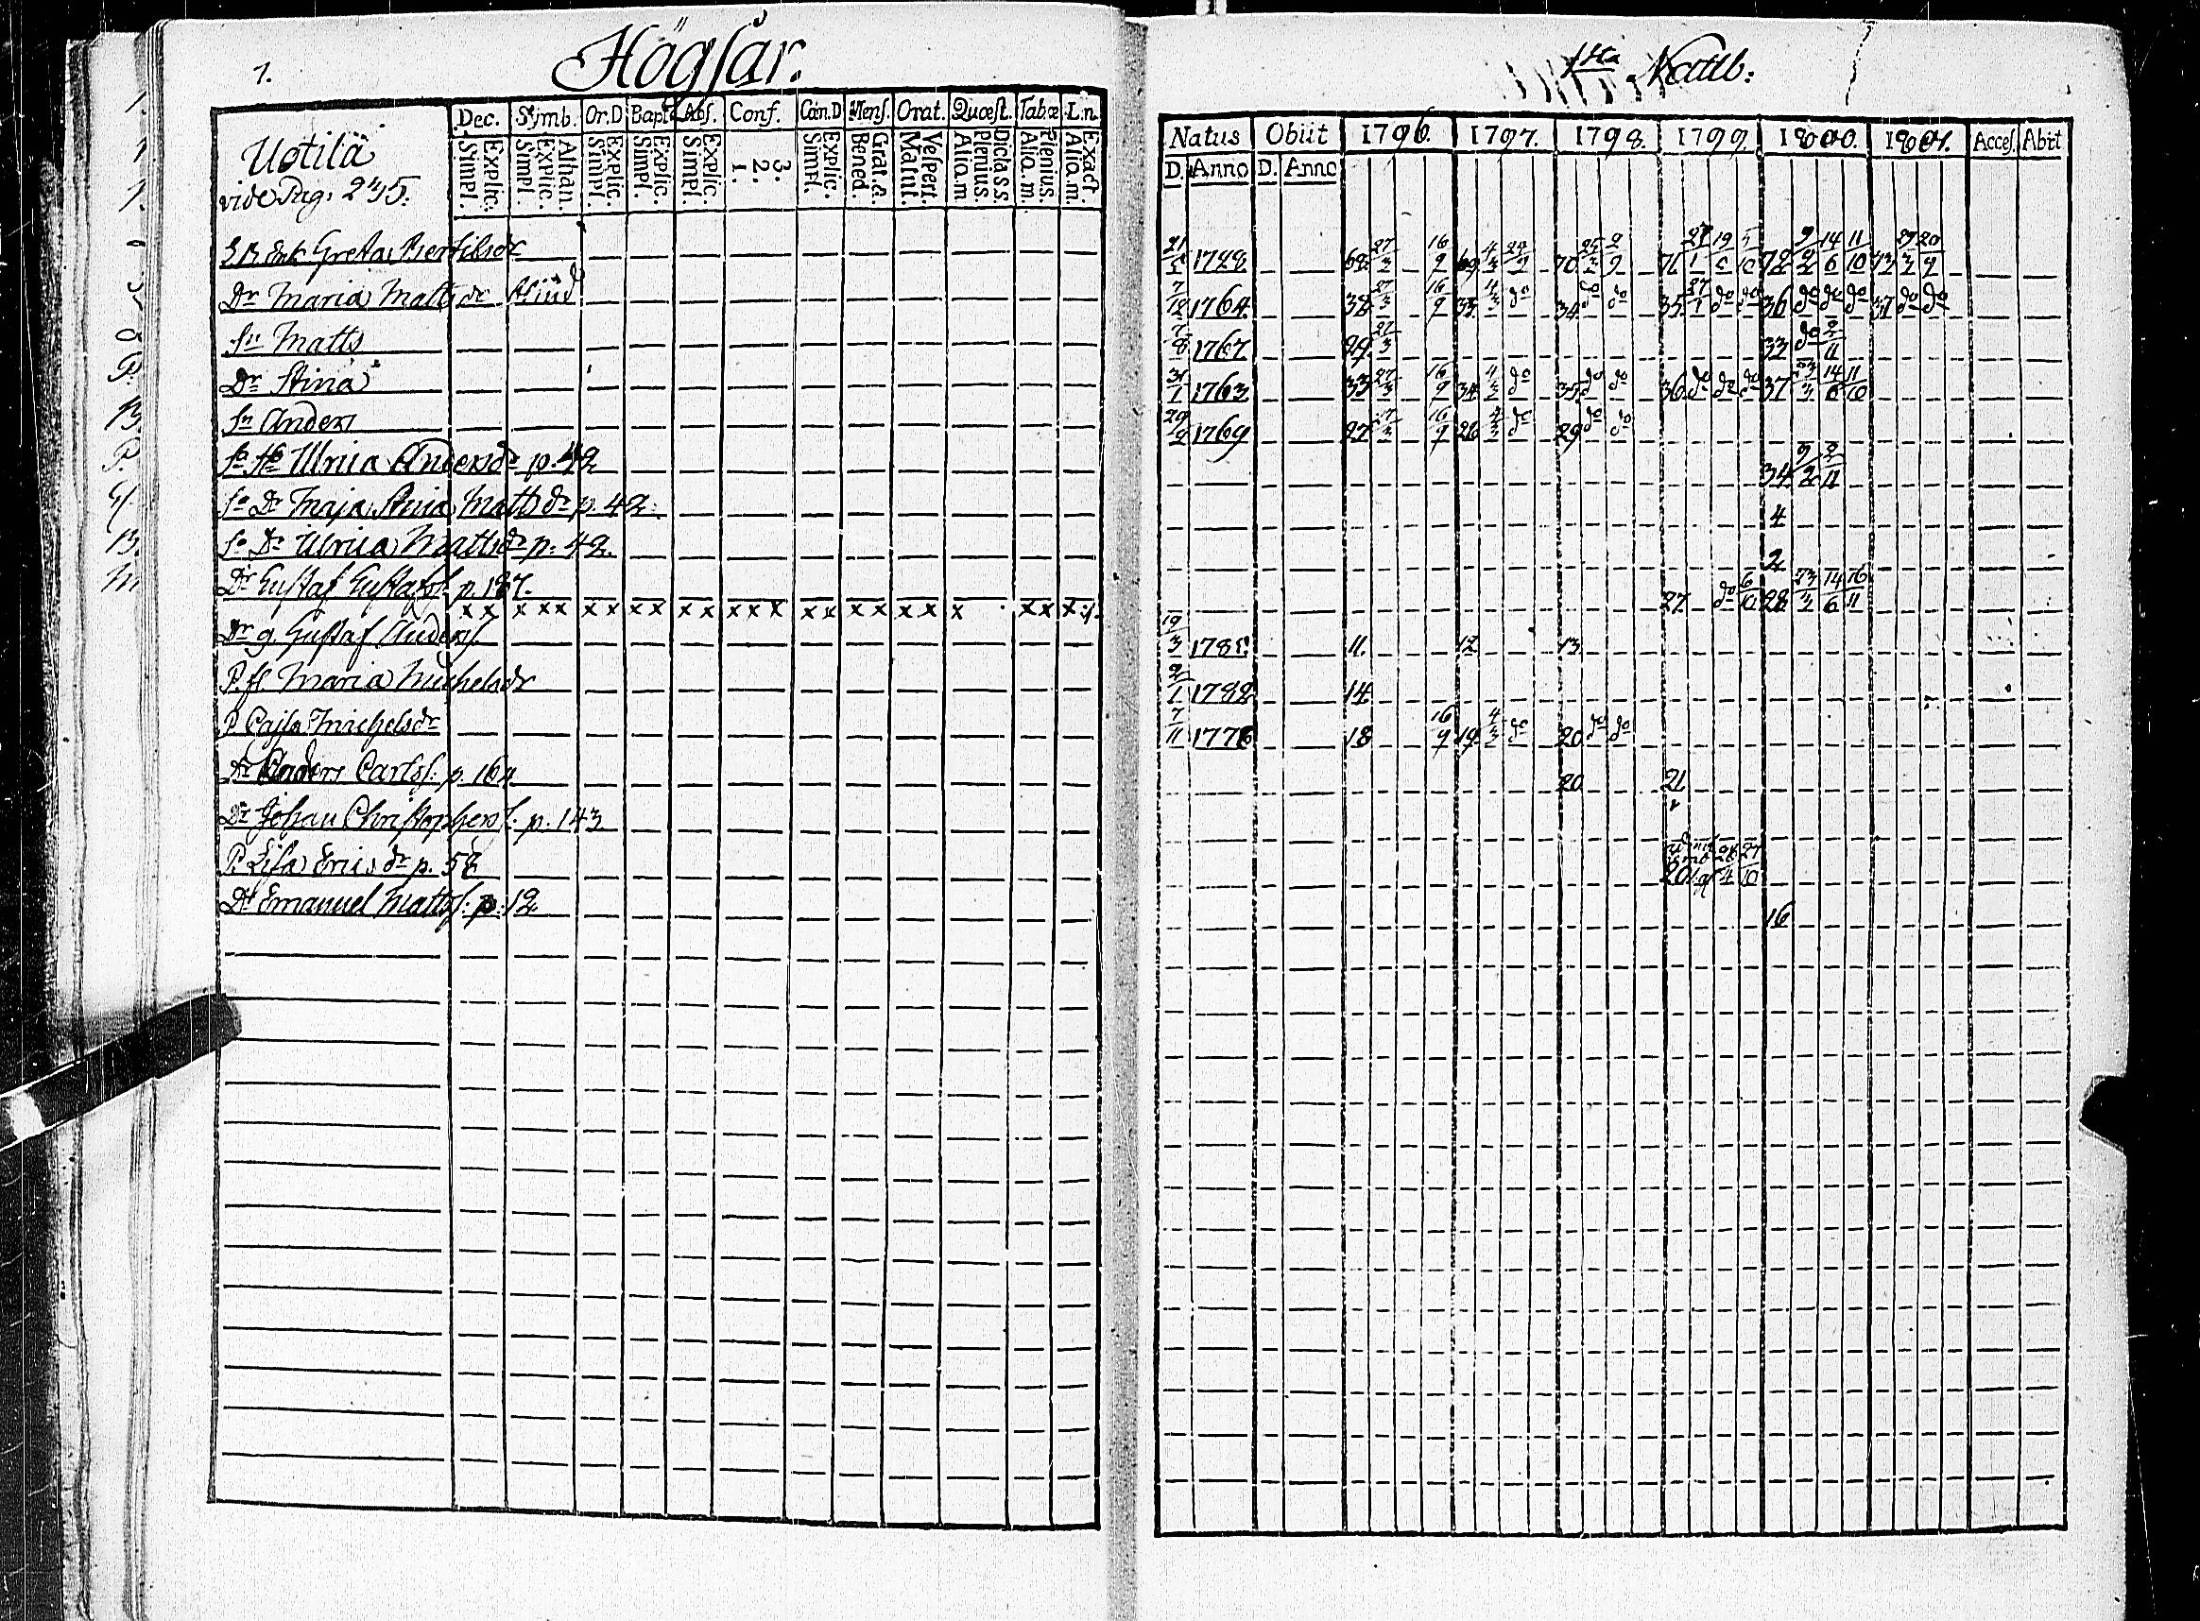 1. Högsår.
Dec. Simb. Or.D Bapt. Abs. Conf. Cœn.D Mens. Orat. Quæst. Tabæ L.n.
Uotilä
vide Pag. 245.
Simpl. Explic. Simpl. Explic. Athan. Simpl. Explic. Simpl. Explic. Simpl. Explic. 1. 2. 3. Simpl. Explic. Bened. Grat. A. Matut. Vespert. Aliq.m Plenius. Dicta S.S. Aliq.m. Plenius. Aliq.m. Exact
Enk Greta Bertilsdr
Dr Maria Mattsdr
Sn Matts
Dr Stina
Sn Anders
Ulrica Andersdr p. 42
Dr Maja Stina Mattsdr p. 42.
Dr Ulrica Mattsdr p. 42.
Dr Gustaf Gustafss. p. 187.
x x x x x x x x x x x x x x x x x x x x x x x x
Dr g. Gustaf Anderss.
P. fl. Maria Michelsdr
P. Cajsa Michelsdr
Dr Anders Carlss. p. 164
Dr Johan Christophers. p. 143
P. Lisa Ericsdr p. 58
Dr Emanuel Mattss. p. 12
1sta Nattb:
Natus Obiit 1796. 1797. 1798. 1799. 1800. 1801. Acces. Abiit
D. Anno D. Anno
21/5 1728 68 27/3 16/9 69 4/3 70 25/3 2/9 76 27/1 19 5/10 72 9/2 14/6 11/10 73 29/3 20/9
7/12 1764 32 27/3 16/9 33 4/3 do 34 do do 35 27/1 do do 36 do do do 37 do do
7/8 1767 29 27/3 33 do 2/11
31/1 1763 33 27/3 16/9 34 4/3 do 35 do do 36 do do do 37 23/3 14/6 11/10
29/9 1769 27 27/3 16/9 28 4/3 do 29 do do
34 9/2 2/11
4
2
27 do 6/10 28 23/3 14/6 16/11
19/3 1785 11. 12 13
2/1 1782 14
7/11 1778 18 16/9 19 4/3 do 20 do do
20 21
20 28/4 27/10
16